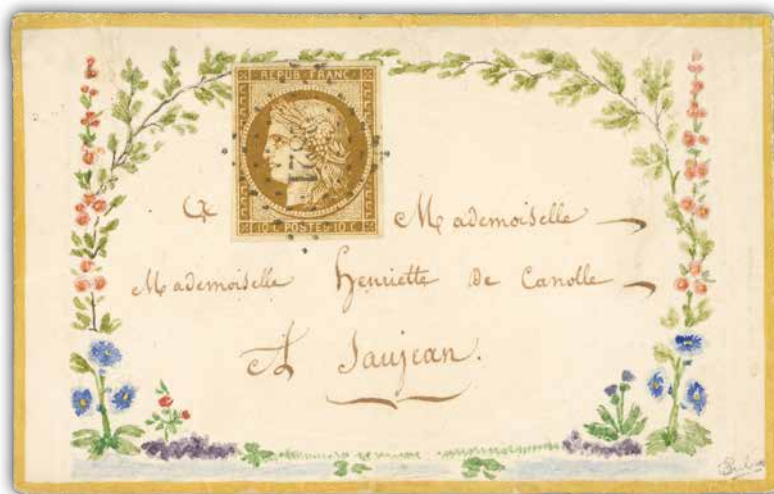 REPUB. FRANC.
10 c. POSTES 10 c.
A Mademoiselle
Mademoiselle Henriette De Canolle
A Saujean.